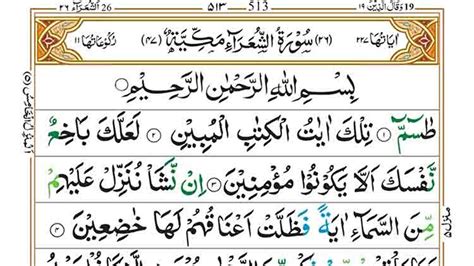 الشعرآء ٢٦ 26 ٥١٣ 513 وقال الذين ١٩ 19
اٰیَاتُهَا ٢٢٧ (٢٦) سُوْرَةُ الشُّعَرَآءِ مَكِّيَّةٌ (٤٧) رُكُوْعَاتُهَا ١١
بِسْمِ اللهِ الرَّحْمٰنِ الرَّحِيْمِ
طٰسٓمّٓ ۝١ تِلْكَ اٰيٰتُ الْكِتٰبِ الْمُبِيْنِ ۝٢ لَعَلَّكَ بَاخِعٌ
نَّفْسَكَ اَلَّا يَكُوْنُوْا مُؤْمِنِيْنَ ۝٣ اِنْ نَّشَاْ نُنَزِّلْ عَلَيْهِمْ
مِّنَ السَّمَآءِ اٰيَةً فَظَلَّتْ اَعْنَاقُهُمْ لَهَا خٰضِعِيْنَ ۝٤
منزل ٥